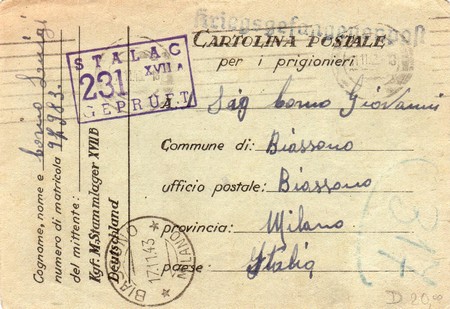 Kriegsgefangenenpost
CARTOLINA POSTALE
per i prigionieri
STALAG
XVII A
231
GEPRUEFT
A: Sig Corno Giovanni
Commune di: Biassono
ufficio postale: Biassono
provincia: Milano
paese: Italia
Cognome, nome e Corno Luigi
numero di matricola
del mittente:
Kgf. M. Stammlager XVII B
Deutschland
17.11.43
MILANO
D 20,00